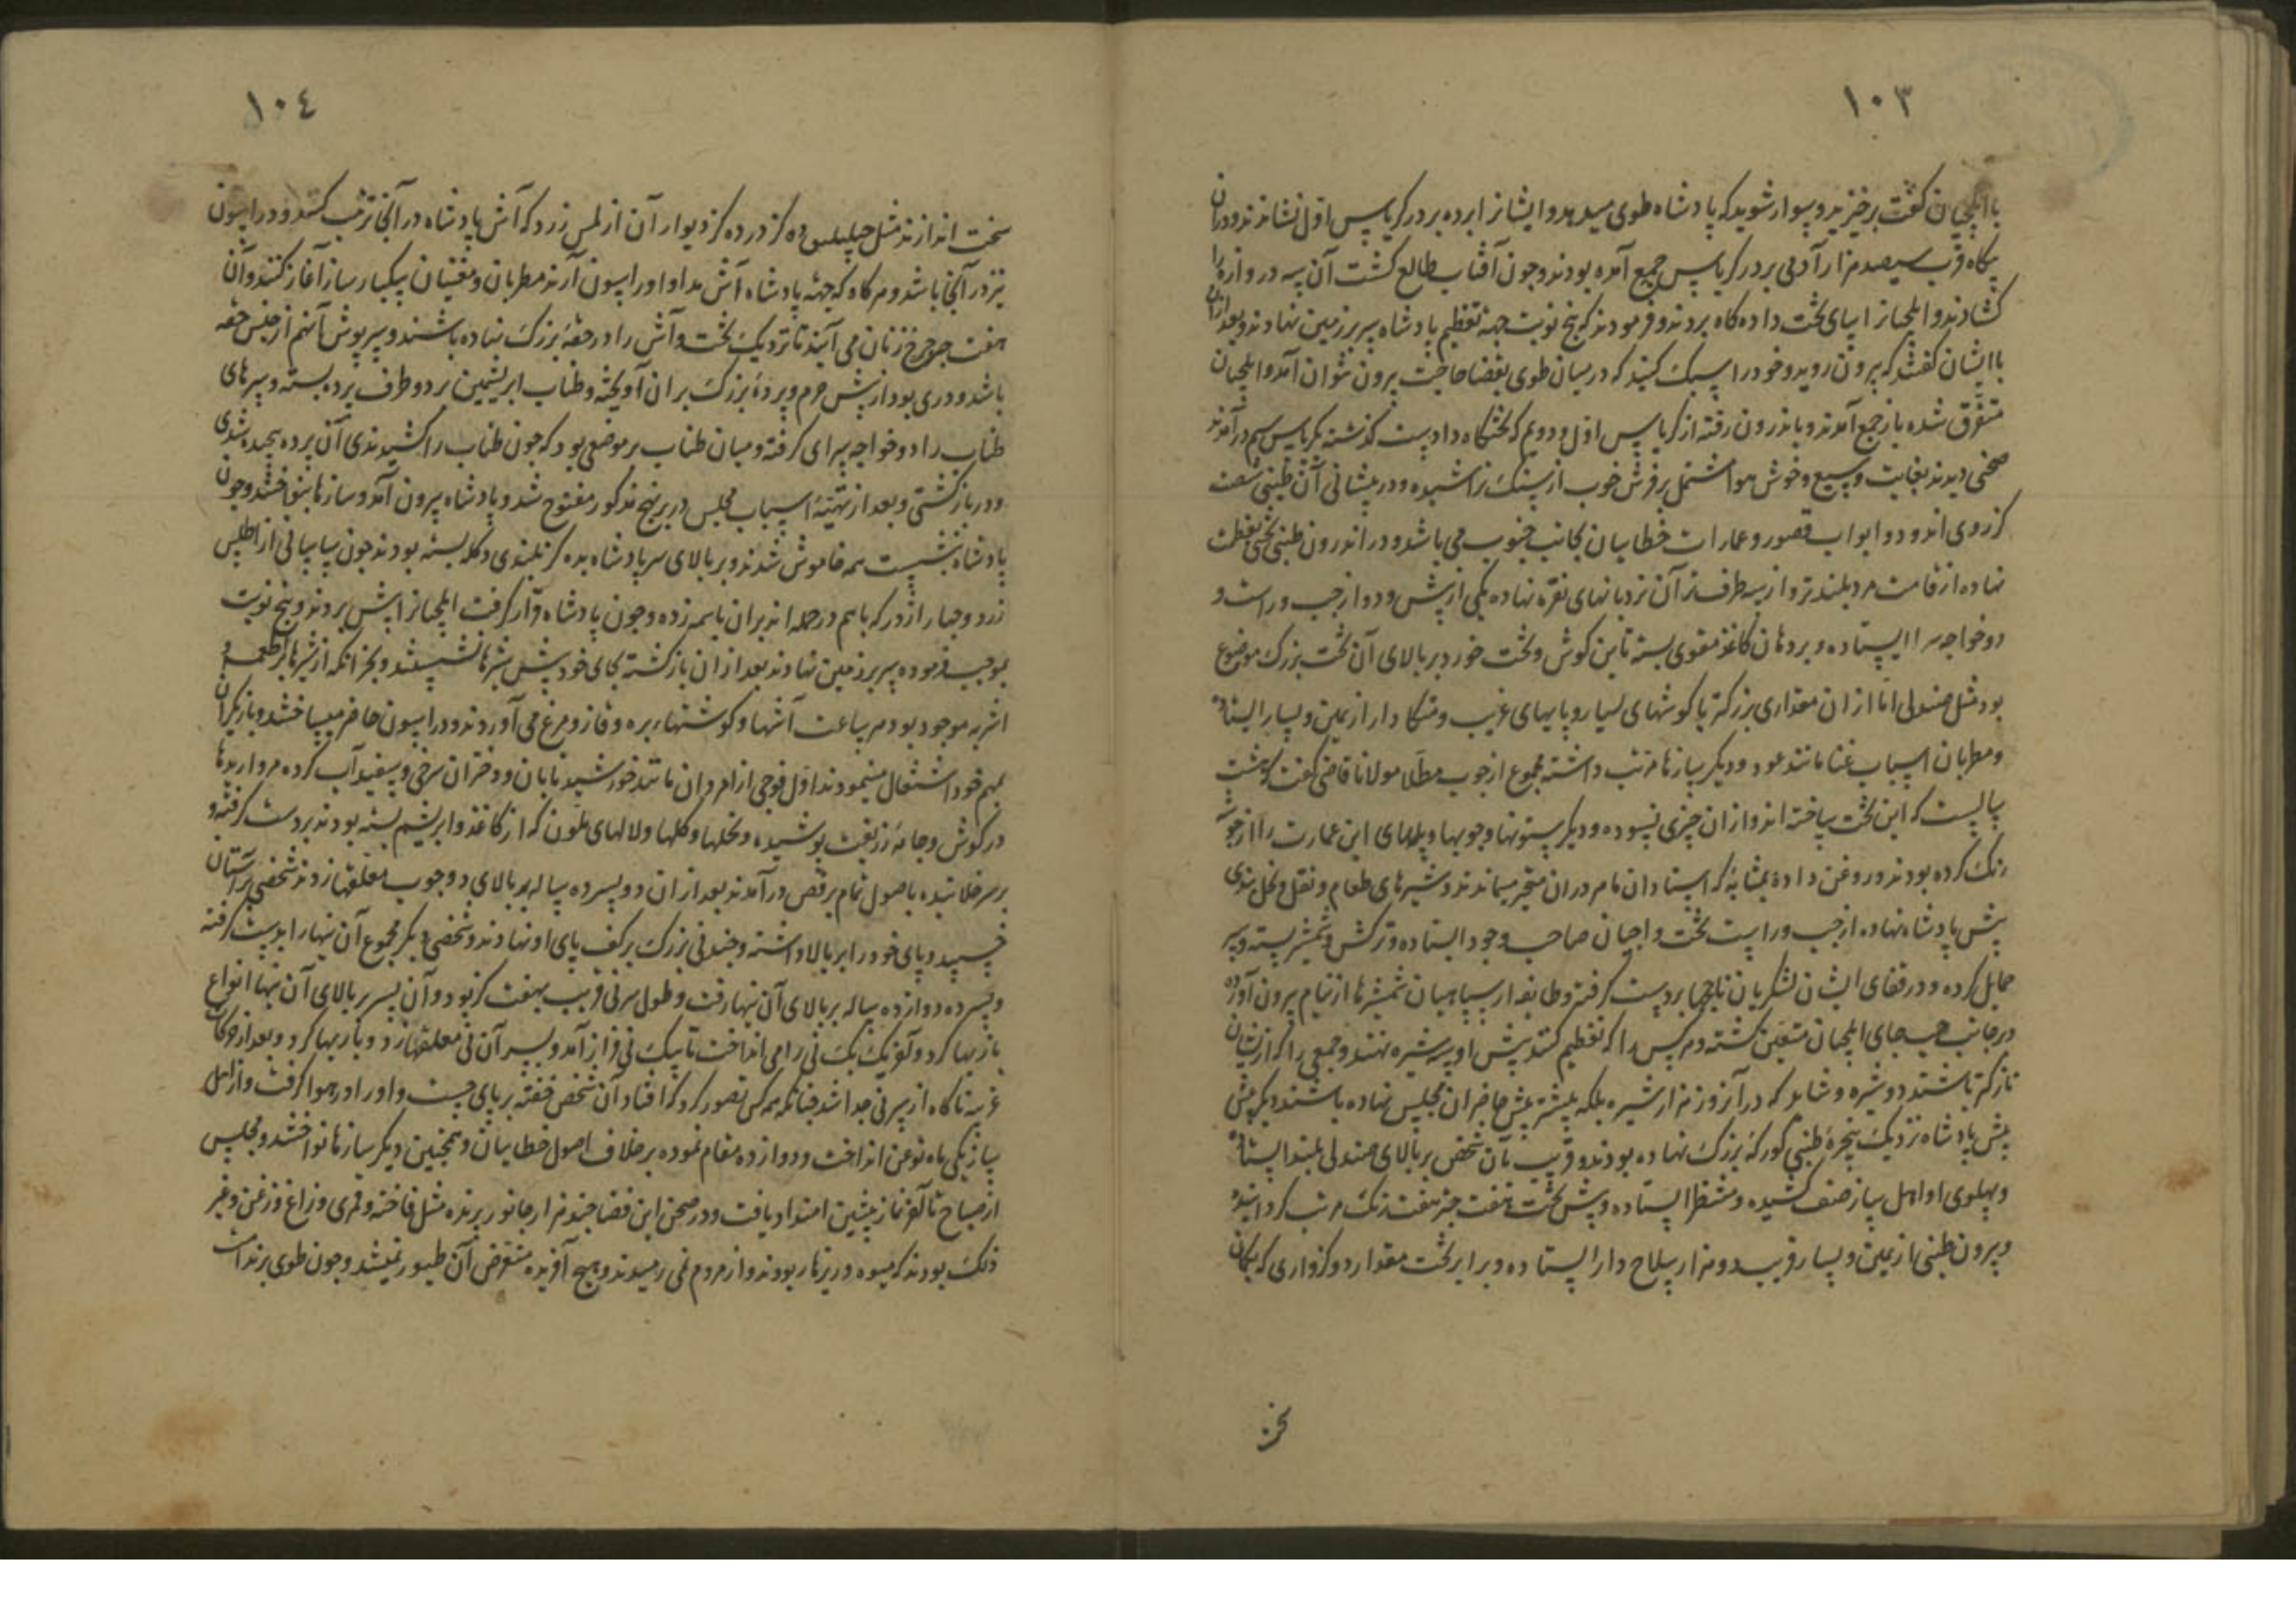 ١٠٣
با ایلچیان گفت برخیزید و سوار شوید که پادشاه طوی میدهد و ایشانرا برده بر در کریاس اول نشاندند و دران
پگاه قرب سیصد هزار آدمی بر در کریاس جمع آمده بودند و چون آفتاب طالع گشت آن سه دروازه را
گشادند و ایلچیانرا بپای تخت داده گاه بردند و فرمودند که پنج نوبت جهة تعظیم پادشاه سر بر زمین نهادند و بعد ازان
با ایشان گفتند که بیرون روید و خود را سبک کنید که در میان طوی بقضا حاجت بیرون نتوان آمد و ایلچیان
متفرق شده باز جمع آمدند و باندرون رفته از کریاس اول و دویم که تختگاه دادست گذشته بکریاس سیم در آمدند
صحنی دیدند بغایت وسیع و خوش هوا مشتمل بر فرش خوب از سنک تراشیده و در پیشانی آن طنبی شصت
گز روی اند و دو ابواب قصور و عمارات خطاییان بجانب جنوب می باشد و در اندرون طنبی تختی بعظمت
نهاده از قامت مرد بلندتر و از سه طرف آن نردبانهای نقره نهاده یکی از پیش و دو از چپ و راست و
دو خواجه سرا ایستاده و بر دهان کاغذ مقوی بسته تا بن گوش و تخت خورد بر بالای آن تخت بزرگ موضوع
بود مثل صندلی اما ازان مقداری بزرگتر با گوشهای بسیار و پایهای غریب و متکا دار از یمین و یسار ایستاده
و مطربان اسباب غنا مانند عود و دیگر سازها مرتب داشته مجموع از چوب مطلا مولانا قاضی گفت که هشت
سالست که این تخت ساخته اند و ازان چیزی نسوده و دیگر ستونها و چوبها و پلهای این عمارت را از چوب
رنگ کرده بودند و روغن داده بمثابهٔ که استادان ماهر دران متحیر میماندند و شیرهای طعام و نقل و نخل بندی
پیش پادشاه نهاده از چپ و راست تخت داجیان صاحب وجود ایستاده و ترکش و شمشیر بسته و سپر
حمایل کرده و در قفای ایشان لشکریان ناچخها بر دست گرفته و طایفه از سپاهیان شمشیرها از نیام بیرون آورده
در جانب چپ جای ایلچیان متعین گشته و هر کس را که تعظیم کنند پیش او سه شیره نهند و جمعی را که از ایشان
نازکتر باشند دو شیره و شاید که در آنروز هزار شیره بلکه بیشتر پیش حاضران مجلس نهاده باشند و دیگر پیش
پیش پادشاه نزدیک پنجرهٔ طنبی کورکهٔ بزرگ نهاده بودند و قریب بآن شخص بر بالای صندلی بلند ایستاده
و پهلوی او اهل ساز صف کشیده و منتظر ایستاده و پیش تخت هفت چتر هفت رنگ مرتب گردانیده
و بیرون طنبی از یمین و یسار قریب دو هزار سلاح دار ایستاده و برابر تخت مقدار دو گزواری که بکمان
نخ
١٠٤
سخت اندازند مثل ده گز در ده گز دیوار آن از اطلس زرد که آش پادشاه در آنجا ترتیب کنند و در اسون
نیز در آنجا باشد و هر گاه که جهة پادشاه آش مداوا و دراسون آرند مطربان و مغنیان بیکبار ساز آغاز کنند و آن
هفت چتر چرخ زنان می آیند تا نزدیک تخت و آش را در حقهٔ بزرگ نهاده باشند و سرپوش آنهم از جنس حقه
باشد و دری بود از پیش حرم و پردهٔ بزرگ بران آویخته و طناب ابریشمین بر دو طرف پرده بسته و سرهای
طناب را دو خواجه سرای گرفته و میان طناب بر موضعی بود که چون طناب را کشیدندی آن پرده پیچیده شدی
و در باز گشتی و بعد از تهیئهٔ اسباب مجلس در بر نهج مذکور مفتوح شد و پادشاه بیرون آمد و سازها بنواختند و چون
پادشاه بنشست همه خاموش شدند و بر بالای سر پادشاه بده گز بلندی دکله بسته بودند چون سایبانی از اطلس
زرد و چهار اژدر که با هم در حمله اند بران باسمه زده و چون پادشاه قرار گرفت ایلچیانرا پیش بردند و پنج نوبت
بموجب فرموده سر بر زمین نهادند بعد ازان باز گشته بجای خود پیش شیرها نشستند و بجز آنکه از شیرها از اطعمه و
اشربه موجود بود هر ساعت آشها و گوشتهاء بره و قاز و مرغ می آوردند و دراسون حاضر میساختند و بازیگران
بمهم خود اشتغال مینمودند اول فوجی از امردان مانند خورشید تابان و دختران سرخی و سفیدآب کرده مرواریدها
در گوش و جامهٔ زربفت پوشیده و نخلها و گلها و لالهای ملون که از کاغذ و ابریشم بسته بودند بر دست گرفته و
بر سر خلانیده باصول تمام برقص در آمدند بعد ازان دو پسر ده ساله بر بالای دو چوب معلقها زدند شخصی بر استان
خسپید و پای خود را بر بالا داشته و چند نی بزرگ بر کف پای او نهادند و شخصی دیگر مجموع آن نیها را بدست گرفته
و پسر ده دوازده ساله بر بالای آن نیها رفت و طول هر نی قریب بهفت گز بود و آن پسر بر بالای آن نیها انواع
بازیها کرد و آخر یک یک نی را می انداخت تا بیک نی فراز آمد و بر سر آن نی معلقها زد و بازیها کرد و بعد از حرکات
غریبه ناگاه از سر نی جدا شد چنانکه همه کس تصور کرد که افتاد آن شخص خفته بر پای جست و او را در هوا گرفت و از اهل
ساز یکی یاتوغن انداخت و دوازده مقام نموده بر خلاف اصول خطاییان و همچنین دیگر سازها نواختند و مجلس
از صباح تا آخر نماز پیشین امتداد یافت و در صحن این فضا چند هزار جانور پرنده مثل فاخته و قمری و زاغ و زغن و غیر
ذلک بودند که میوه و ریزها ربودند و از مردم نمی رمیدند و هیچ آفریده متعرض آن طیور نمیشد و چون طوی بر نداشت